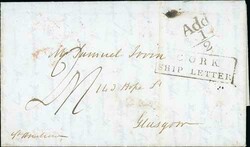 Add
1/2
CORK
SHIP LETTER
Mr Samuel Irvin
163 Hope St
Glasgow